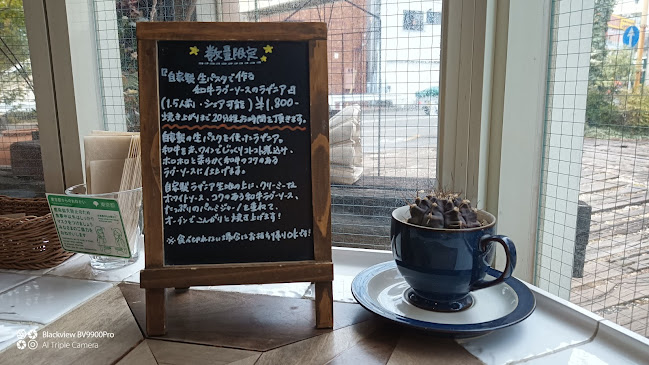 数量限定
『自家製生パスタで作る
和牛ラグーソースのラザニア』
(1.5人前・シェア可能) ¥1,800-
焼き上がりまで20分程お時間を頂きます。
自家製の生パスタを使ったラザニア。
和牛を赤ワインでじっくりコトコト煮込み、
ホロホロと柔らかく和牛のコクのある
ラグーソースに仕上げます。
自家製ラザニア生地の上に、クリーミーな
ホワイトソース、コクのある和牛ラグーソース、
たっぷりのパルミジャーノを重ねて、
オーブンでこんがりと焼き上げます!
※食べきれない場合はお持ち帰りOKです!
Blackview BV9900Pro
AI Triple Camera